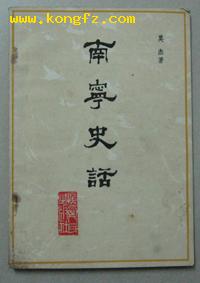 www.kongfz.com
莫杰著
南宁史話